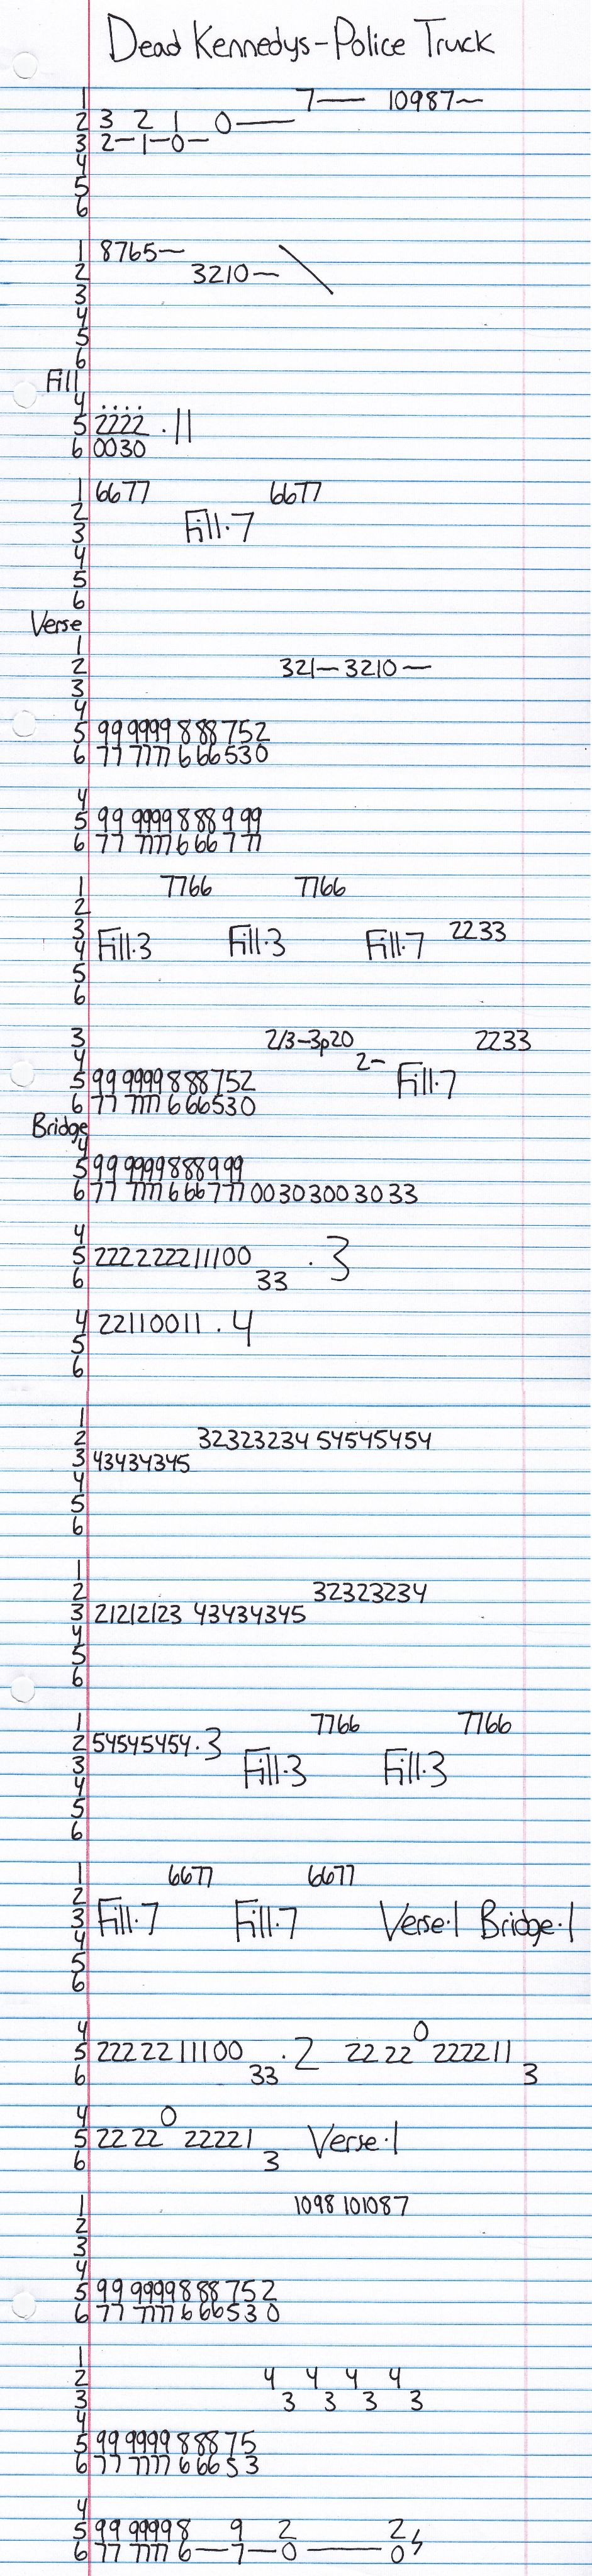 Dead Kennedys-Police Truck
1 7— 10987~
2 3 2 1 0—
3 2—1—0—
4
5
6
1 8765~
2 3210~
3
4
5
6
Fill
4 ....
5 2222 .11
6 0030
1 6677 6677
2
3 Fill.7
4
5
6
Verse
1
2 321—3210—
3
4
5 99 9999 8 88 752
6 77 7777 6 66530
4
5 99 9999 8 88 9 99
6 77 7777 6 66 7 77
1 7766 7766
2
3 2233
4 Fill.3 Fill.3 Fill.7
5
6
3 2/3-3p20 2233
4 2-
5 99 9999 8 88752 Fill.7
6 77 7777 6 66530
Bridge
4
5 99 9999 888 9 99
6 77 7777 6 66 7 77 00303003033
4
5 222222211100 .3
6 33
4 22110011 .4
5
6
1
2 32323234 54545454
3 43434345
4
5
6
1
2 32323234
3 21212123 43434345
4
5
6
1 7766 7766
2 54545454.3
3 Fill.3 Fill.3
4
5
6
1 6677 6677
2
3 Fill.7 Fill.7 Verse.1 Bridge.1
4
5
6
4 0
5 222 22 11100 .2 22 22 222211
6 33 3
4 0
5 22 22 22221 Verse.1
6 3
1 1098 101087
2
3
4
5 99 9999 8 88 752
6 77 7777 6 66 5 3 0
1
2 4 4 4 4
3 3 3 3 3
4
5 99 9999 8 8875
6 77 7777 6 66 5 3
4
5 99 9999 8 9 2 2
6 77 7777 6—7—0—0